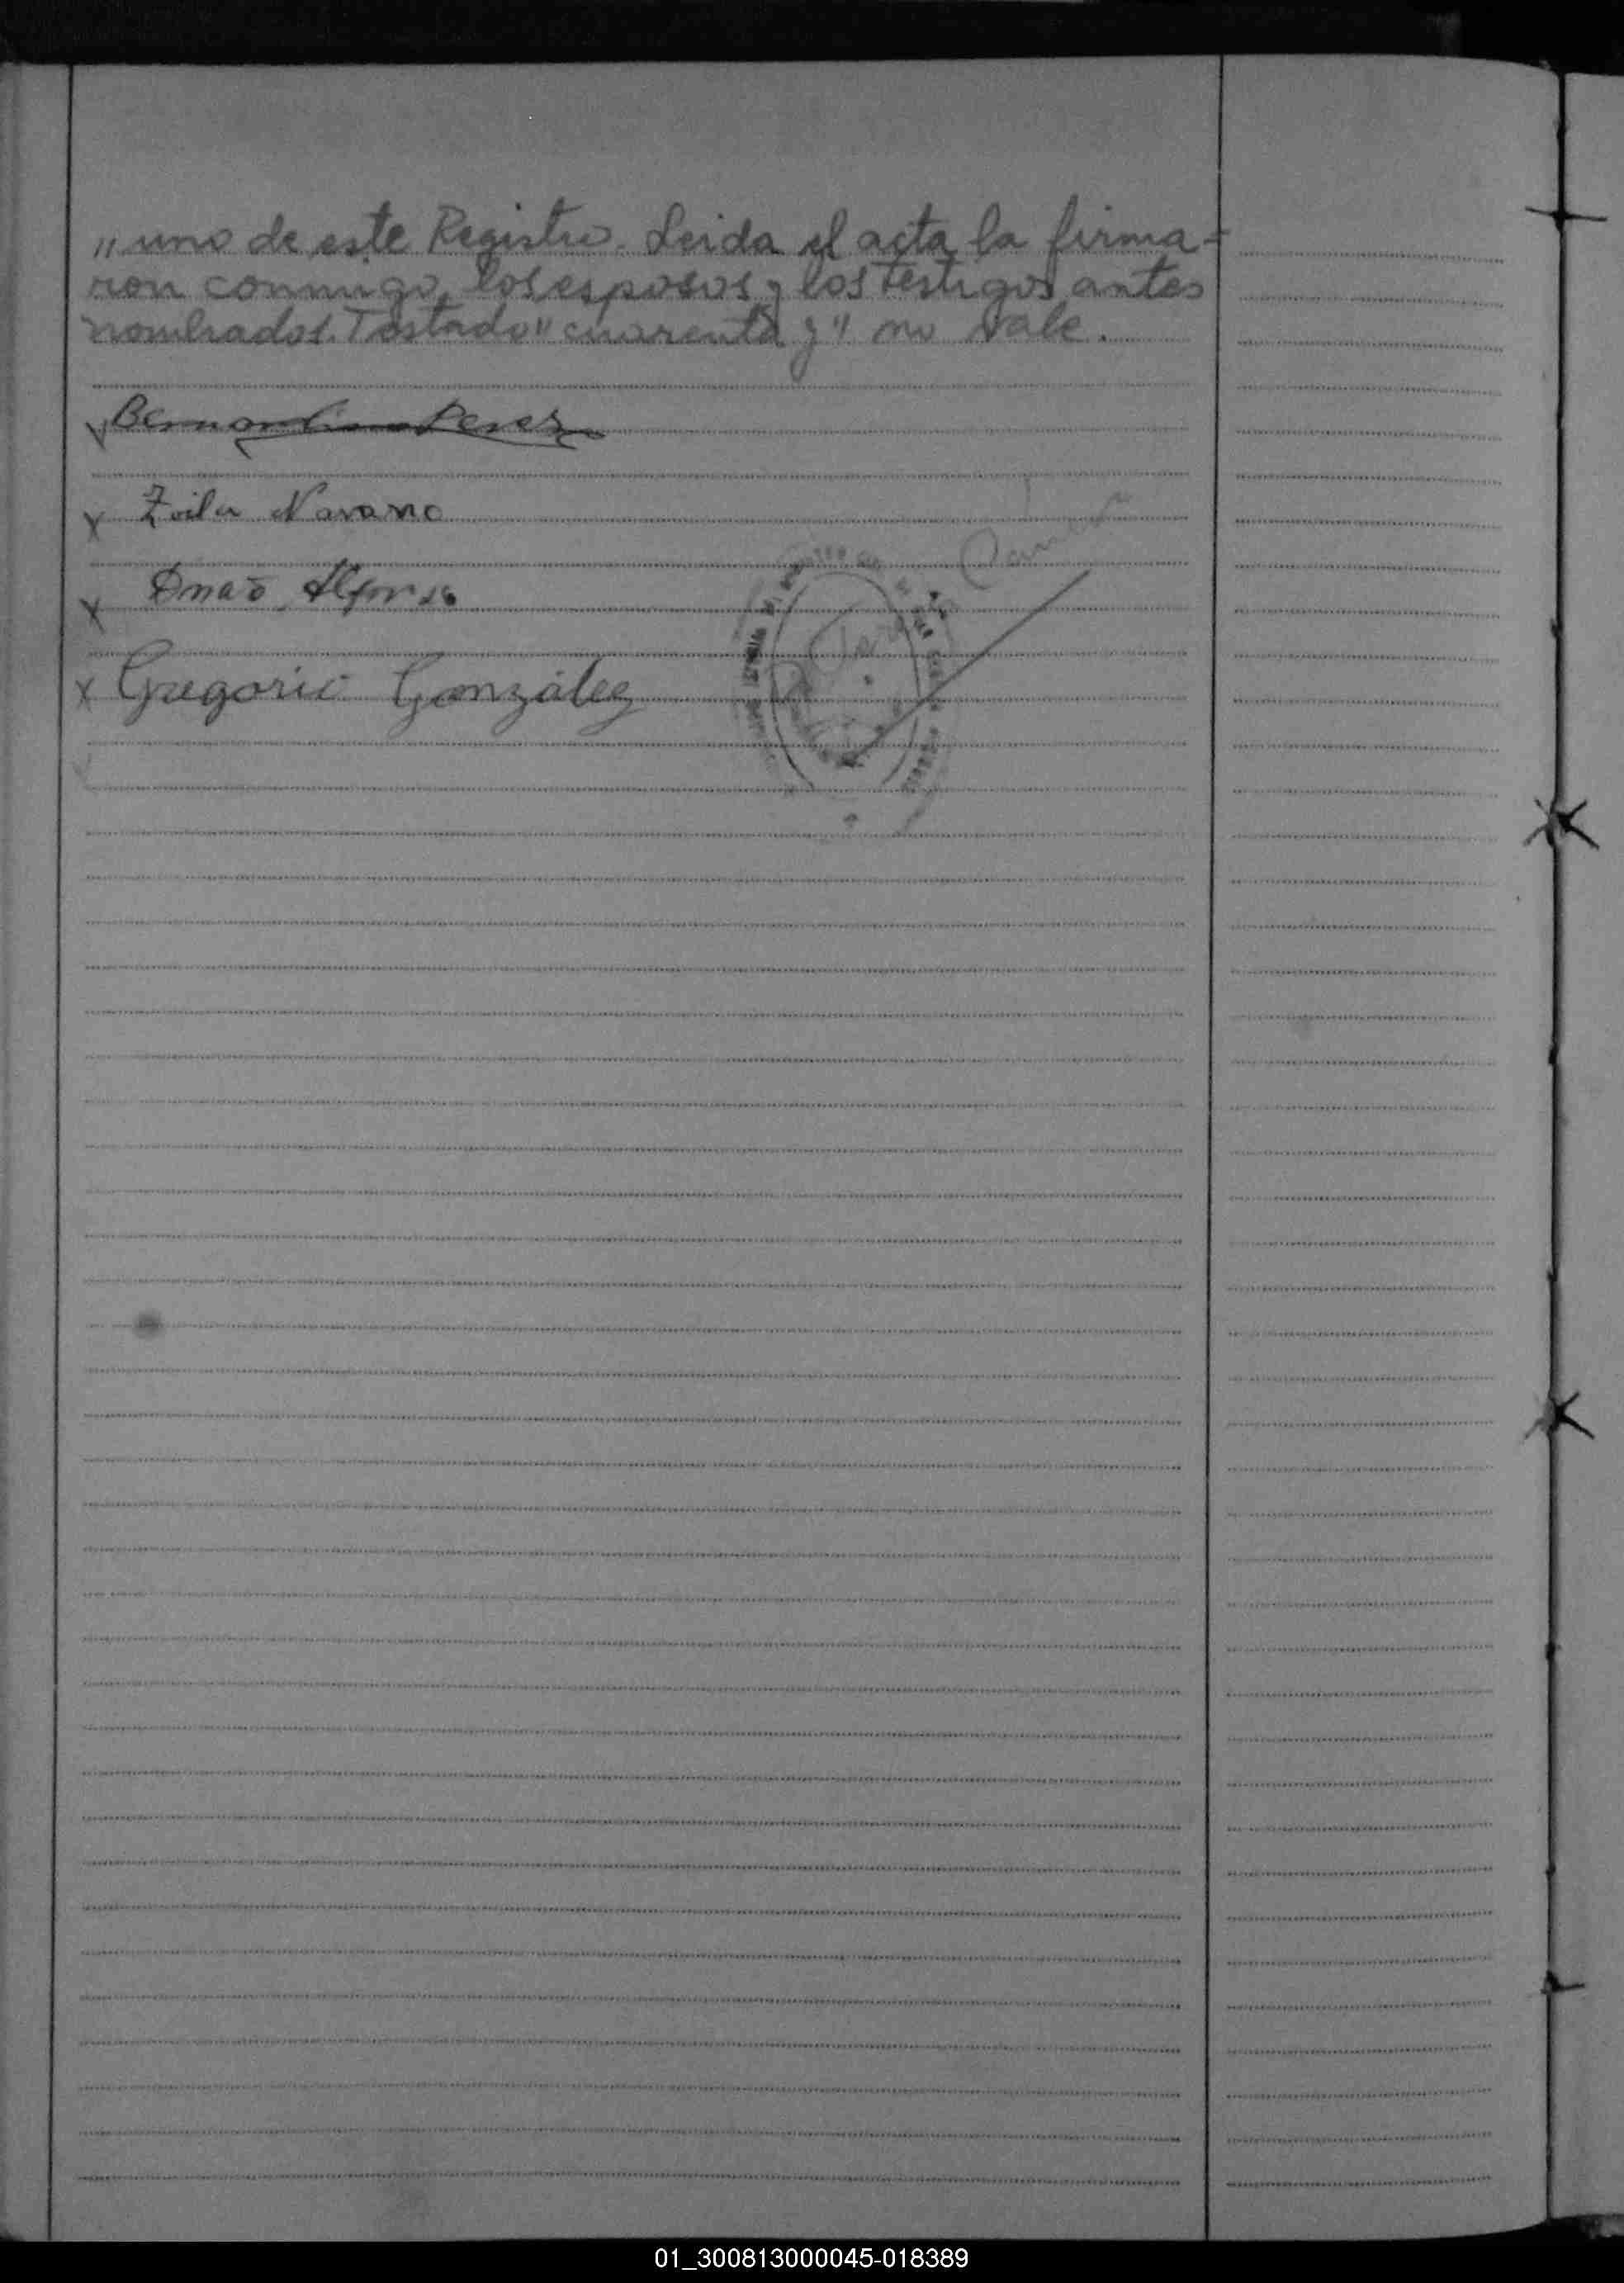 "uno de este Registro. Leida el acta la firma=
ron conmigo, los esposos y los testigos antes
nombrados. Testado "cuarenta y" no vale.
x Bernardino Perez
x Zoila Navarro
x Alfonso
x Gregorio González
01_300813000045-018389